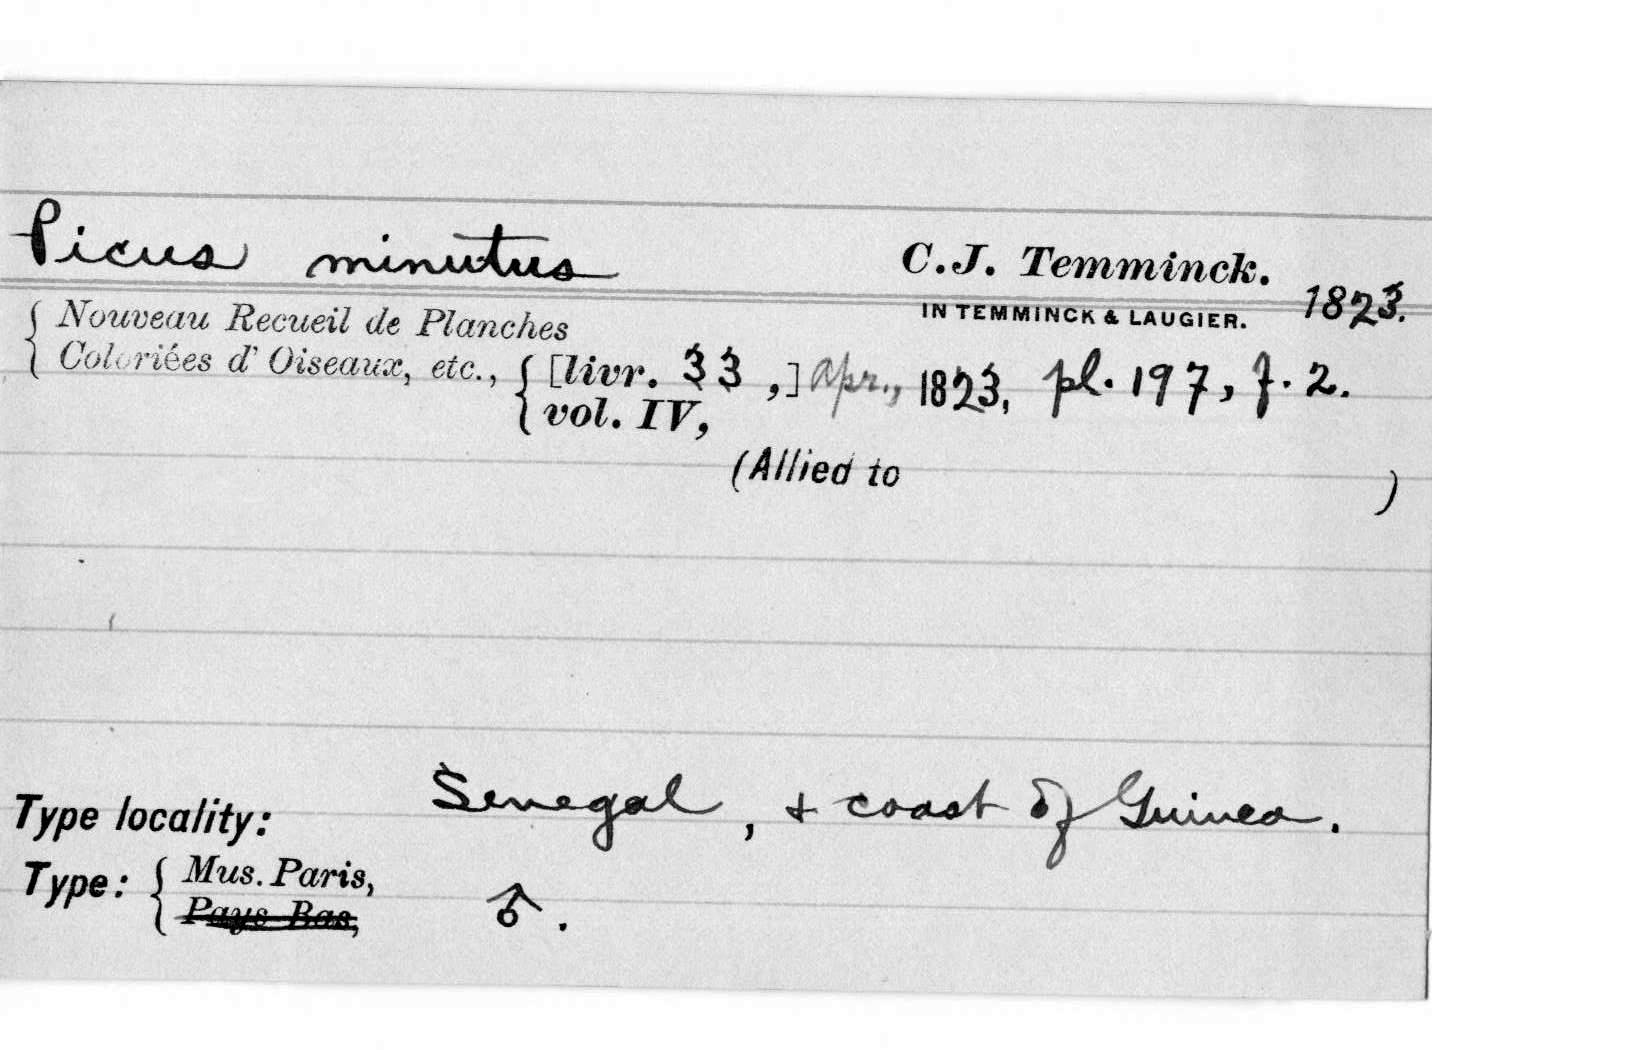 Picus minutus C.J. Temminck.
IN TEMMINCK & LAUGIER. 1823.
{ Nouveau Recueil de Planches
Coloriées d' Oiseaux, etc., { [livr. 33 ,] apr., 1823, pl. 197, f. 2.
vol. IV,
(Allied to )
Type locality: Senegal, + coast of Guinea.
Type: { Mus. Paris, ♂.
Pays Bas,